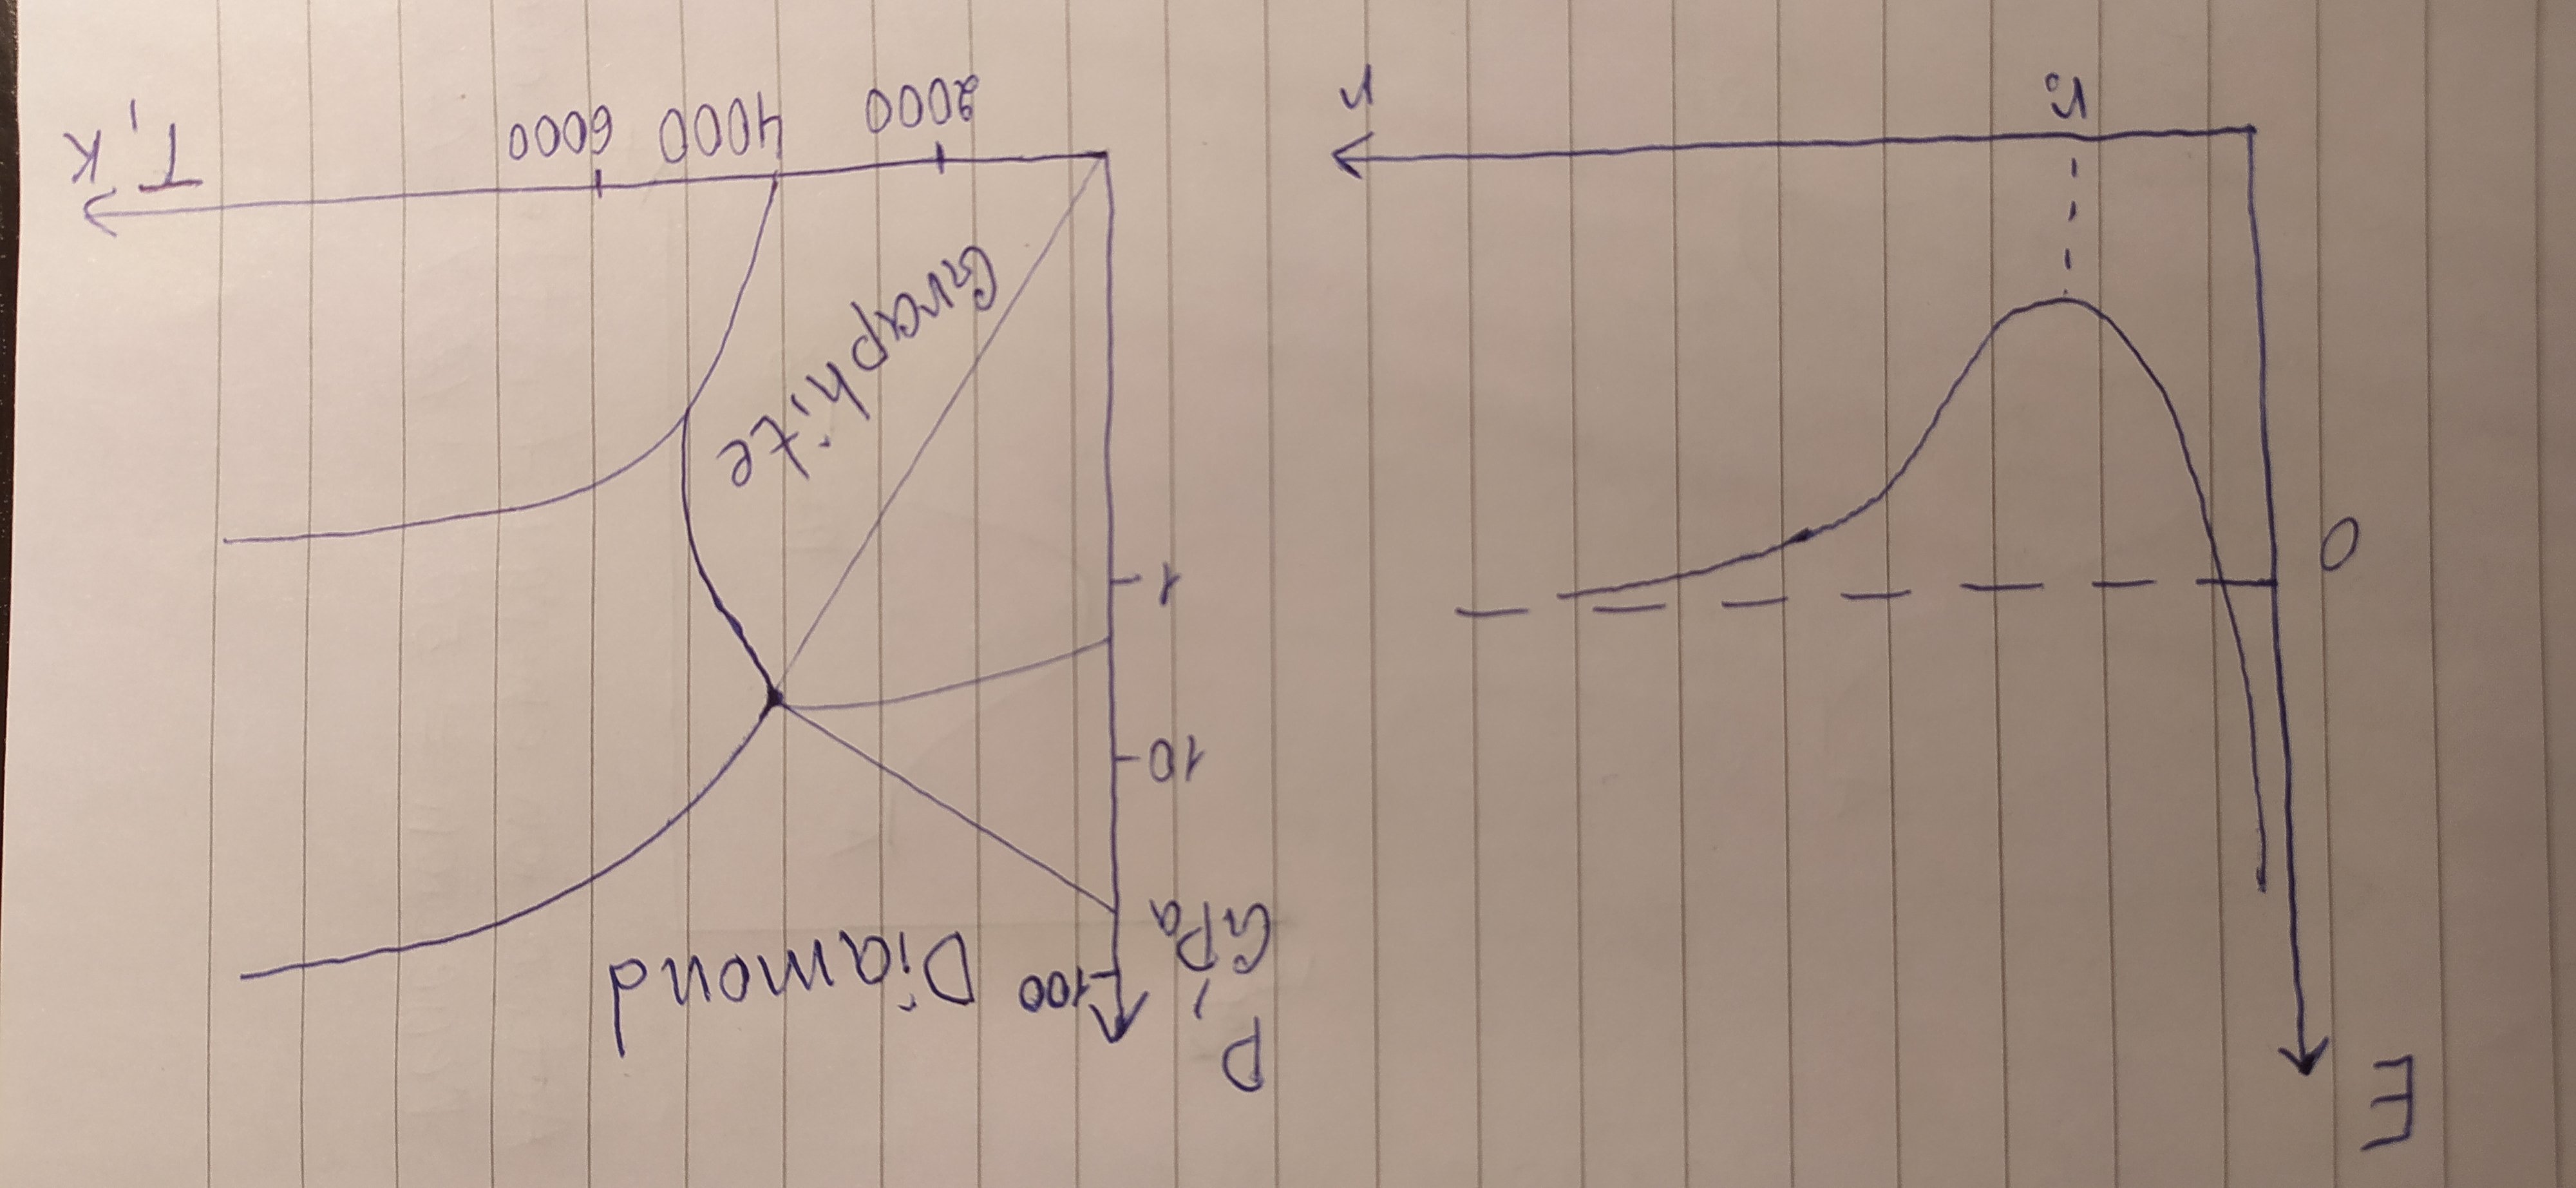 E
0
r₀
r
P,
GPa
100
Diamond
10
1
Graphite
2000 4000 6000 T, K